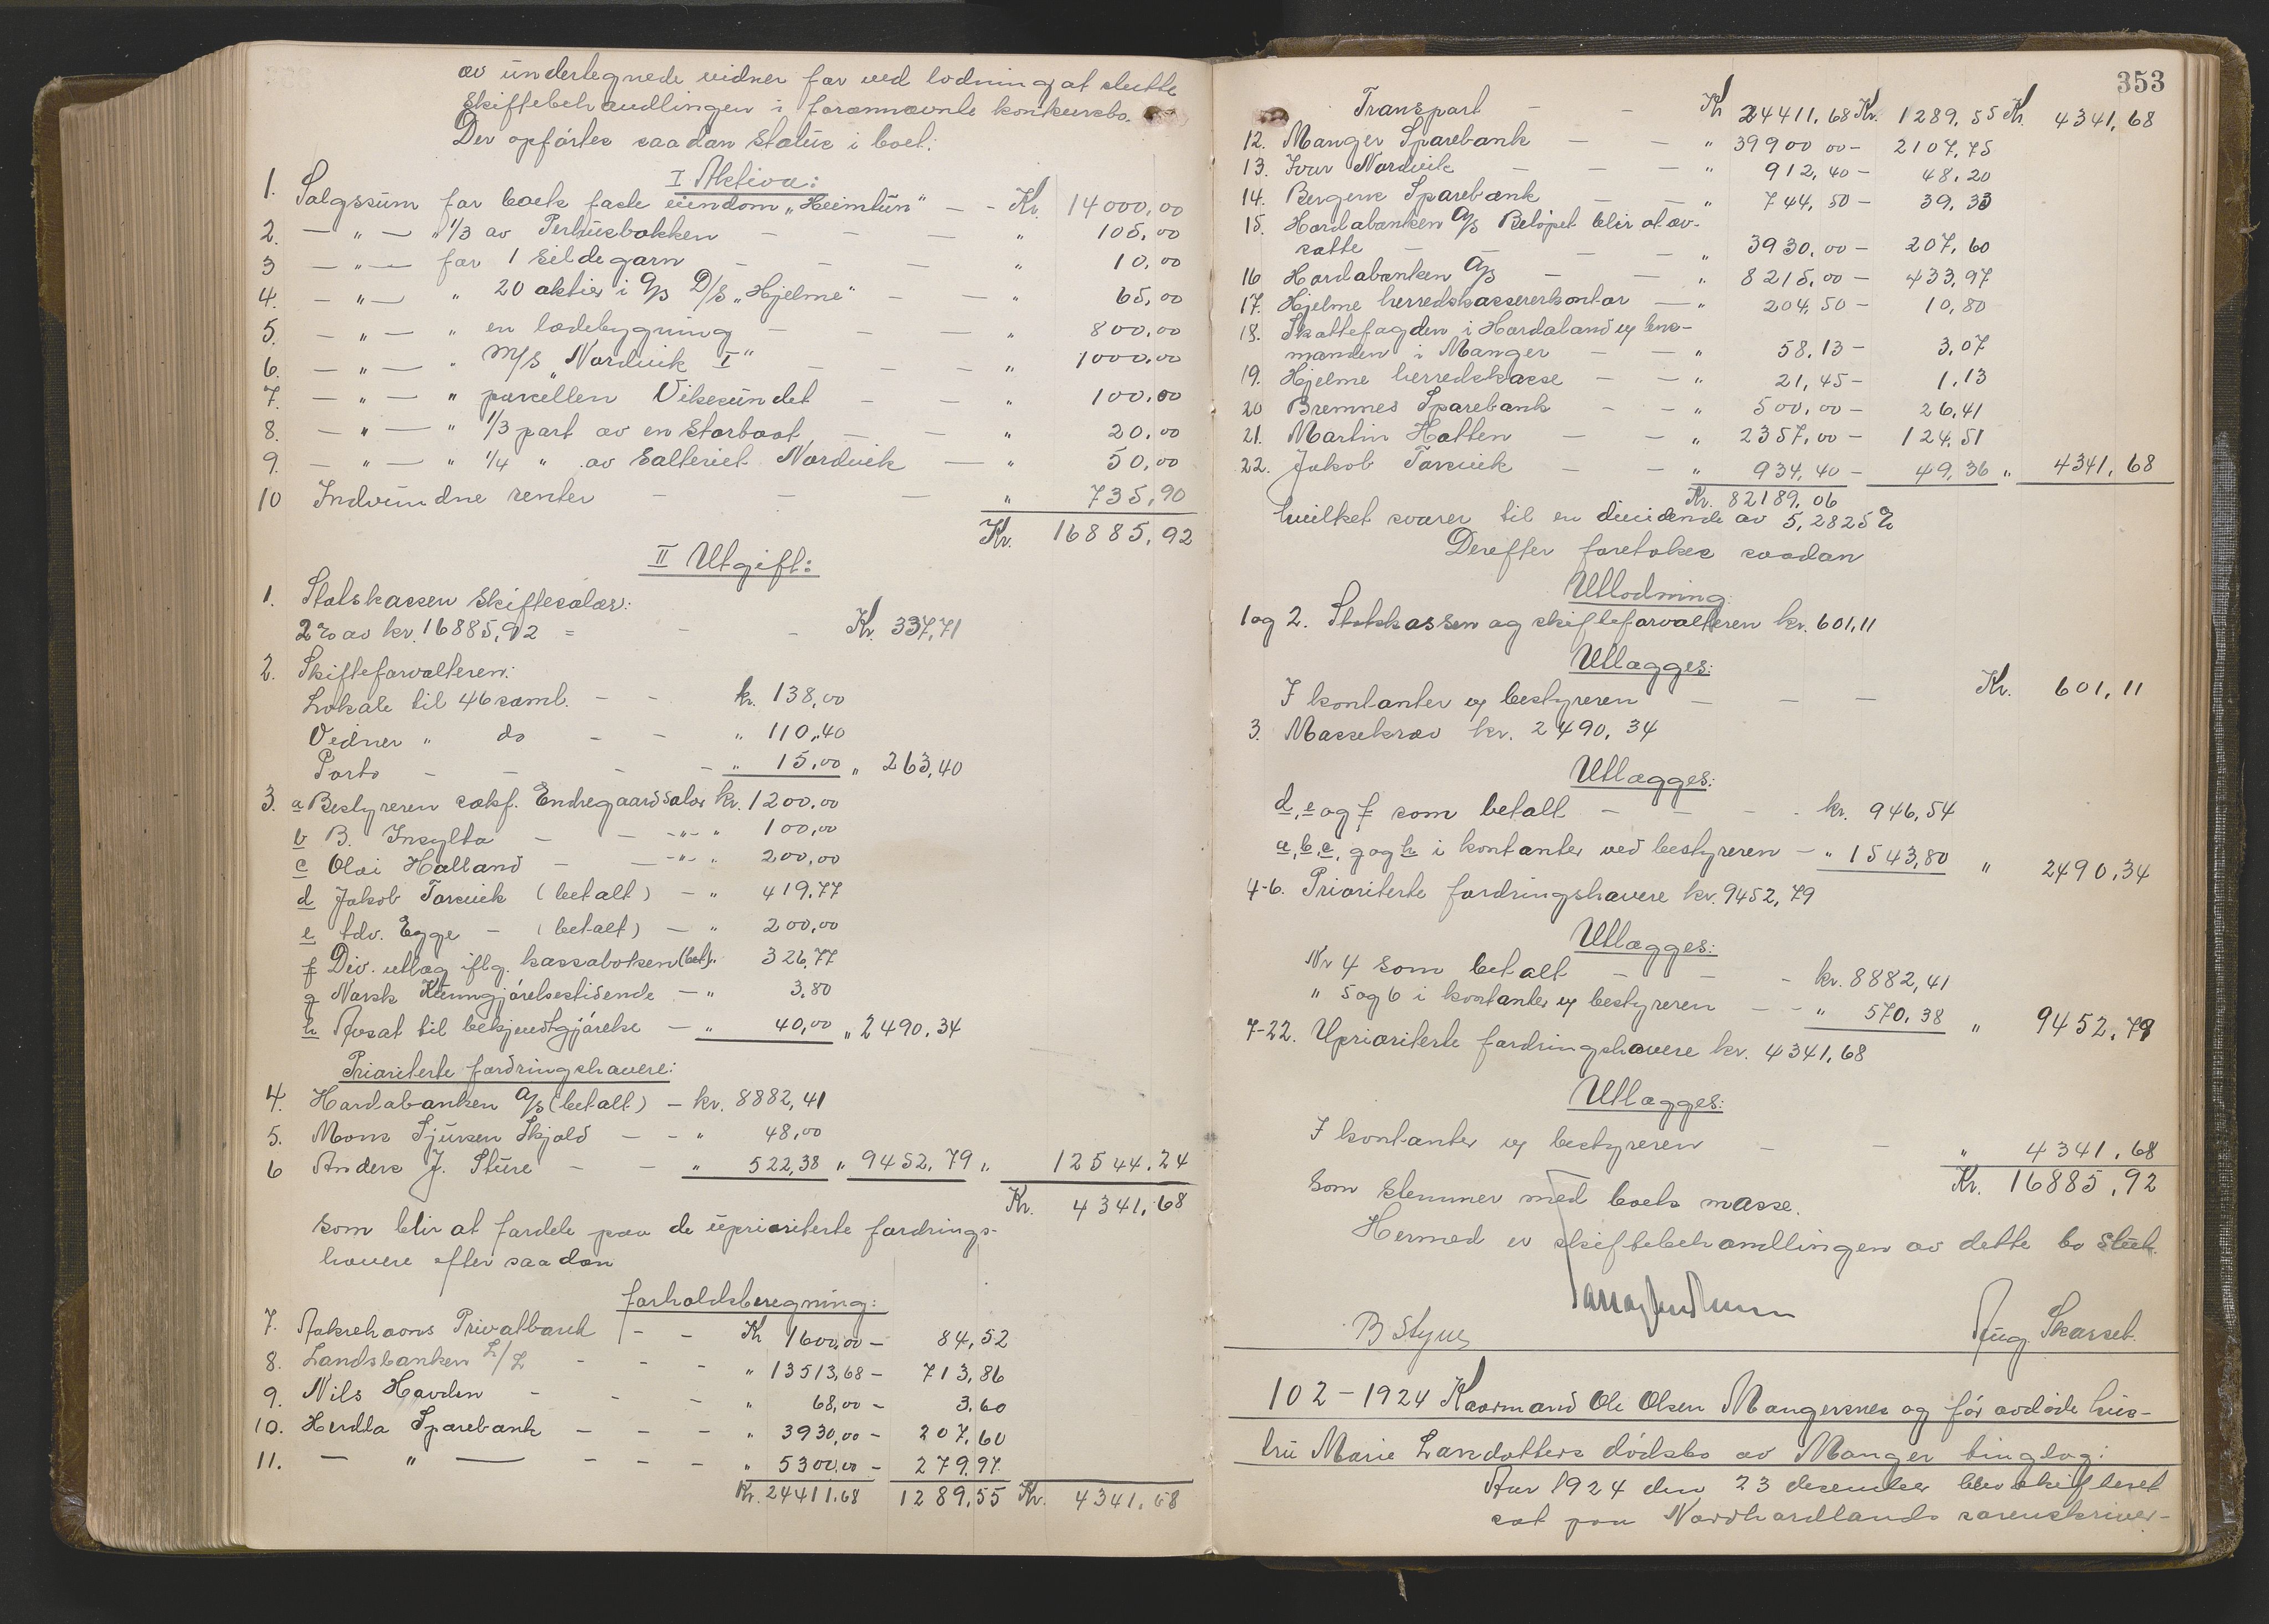 av undertegnede vidner for ved lodning at slutte
skiftebehandlingen i forannævnte konkursbo.
Der opførtes saadan status i boet:
I Aktiva:
1. Salgssum for boets faste eiendom „Heimtun" — - Kr. 14000,00
2. — " — " 1/3 av Perhusbakken — — — " 105,00
3 — " — for 1 sildegarn — — — " 10,00
4. — " — " 20 aktier i A/S D/S „Hjelme" — — " 65,00
5. — " — " en lødebygning — — — " 800,00
6. — " — " M/S „Nordvik I" — — — " 1000,00
7 — " — " parcellen Vikesundet — — " 100,00
8. — " — " 1/3 part av en Storbaat — — " 20,00
9. — " — " 1/4 " av Salteriet Nordvik — " 50,00
10 Indvundne renter — — — " 735,90
Kr. 16885,92
II Utgift:
1. Statskassen skiftesalær:
2% av kr. 16885,92 = — — Kr. 337,71
2. Skifteforvalteren:
Lokale til 46 saml. — — kr. 138,00
Vidner " do — — " 110,40
Porto — — — — " 15,00 " 263,40
3. a Bestyreren sakf. Endregaard Salær kr. 1200,00
b B. Insylta — — -"- " 100,00
c Olai Halland — — -"- " 200,00
d Jakob Torsvik (betalt) — " 419,77
e tdv. Egge — (betalt) — " 200,00
f Div. utlæg iflg. kassaboken (bet) " 326,77
g Norsk Kunngjørelsestidende — " 3,80
h Avsat til bekjendtgjørelse — " 40,00 " 2490,34
Prioriterte fordringshavere:
4. Hardabanken A/S (betalt) — kr. 8882,41
5. Mons Sjursen Skjold — - " 48,00
6 Anders J. Sture — — " 522,38 " 9452,79 " 12544,24
Kr. 4341,68
som blir at fordele paa de uprioriterte fordrings-
havere efter saadan
forholdsberegning:
7. Aakrehavns Privatbank — — Kr 1600,00 — 84,52
8. Landsbanken L/L - - - " 13513,68 — 713,86
9. Nils Havden - - - " 68,00 — 3,60
10. Herdla Sparebank — — — " 3930,00 — 207,60
11. — " — - - - " 5300,00 — 279,97
Kr. 24411,68 1289,55 Kr. 4341,68
353
Transport — — Kr 24411,68 Kr. 1289,55 Kr. 4341,68
12. Manger Sparebank — — " 39900 00 — 2107,75
13. Ivar Nordvik — — — " 912,40 — 48,20
14. Bergens Sparebank — — " 744,50 — 39,33
15. Hardabanken A/S Beløpet blir at av-
sætte — — — " 3930,00 — 207,60
16 Hardabanken A/S — — " 8215,00 — 433,97
17. Hjelme herredskassererkontor — " 204,50 — 10,80
18. Skattefogden i Hordaland v/ lens-
manden i Manger — — " 58,13 — 3,07
19. Hjelme herredskasse — — " 21,45 — 1,13
20 Bremnes Sparebank — — " 500,00 — 26,41
21. Martin Hatten — — " 2357,00 — 124,51
22. Jakob Torsvik — — " 934,40 — 49,36 " 4341,68
Kr. 82189,06
hvilket svarer til en dividende av 5,2825%
Derefter foretokes saadan
Utlodning:
1 og 2. Statskassen og skifteforvalteren kr. 601,11
Utlægges:
I kontanter v/ bestyreren — — — Kr. 601,11
3. Massekrav kr. 2490,34
Utlægges:
d, e og f som betalt — — - kr. 946,54
a, b, c, g og h i kontanter ved bestyreren — " 1543,80 " 2490,34
4-6. Prioriterte fordringshavere kr. 9452,79
Utlægges:
Nr 4 som betalt — — - kr. 8882,41
" 5 og 6 i kontanter v/ bestyreren — - " 570,38 " 9452,79
7-22. Uprioriterte fordringshavere kr. 4341,68
Utlægges:
I kontanter v/ bestyreren — — " 4341,68
Kr. 16885,92
som stemmer med boets masse.
Hermed er skiftebehandlingen av dette bo slut.
B Styve
Aug. Skarset.
102 - 1924 Kaarmand Ole Olsen Mangersnes og før avdøde hus-
tru Marie Larsdotters dødsbo av Manger tinglag:
Aar 1924 den 23 desember blev skifteret
sat paa Nordhordlands sorenskriver-